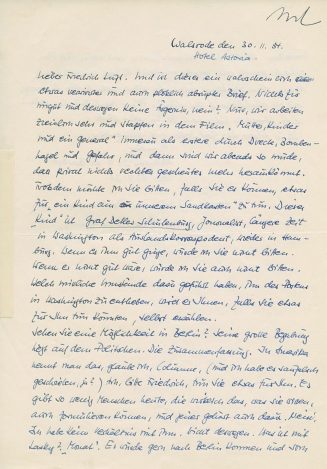 Walsrode den 30. 11. 54.
Hotel Astoria
Lieber Friedrich Luft. Und ist dieses ein wahrscheinlich
etwas verworrener und auch plötzlich abrupter Brief. Nichts für
ungut und deswegen keine Ärgernis, nein? Nun, wir arbeiten
ziemlich sehr und stapfen in dem Film "Mütter, Kinder
und ein General" immerzu als erste durch Dreck, Bomben-
hagel und Gefahr, und dann sind wir abends so müde,
dass nichts rechtes gescheites mehr herauskommt.
Trotzdem möchte ich Sie bitten, falls Sie es können, etwas
für "ein Kind aus unserem Sandkasten" zu tun. Dieses
"Kind" ist Graf Detlev Schulenburg, Journalist, längere Zeit
in Washington als Auslandskorrespondent, wieder in Ham-
burg. Wenn es ihm gut ginge, würde ich Sie nicht bitten.
Wenn er nicht gut wäre, würde ich Sie auch nicht bitten.
Welch missliche Umstände dazu geführt haben, ihn des Postens
in Washington zu entheben, wird er Ihnen, falls Sie etwas
für ihn tun könnten, selbst erzählen.
Sehen Sie eine Möglichkeit in Berlin? Seine große Begabung
liegt auf dem Politischen. Die Zusammenfassung. In Amerika
nennt man das, glaube ich, Columne, (und ich habe es
geschrieben, ja?) Ach, lieber Friedrich, tun Sie etwas für ihn. Es
gibt so wenig Menschen heute, die wirklich das, was sie wissen,
auch formulieren können, und jener gehört auch dazu. Nein:
Ich habe kein Verhältnis mit ihm. Nicht deswegen. Was ist mit
Lasky? "Monat". Er würde gern nach Berlin kommen und